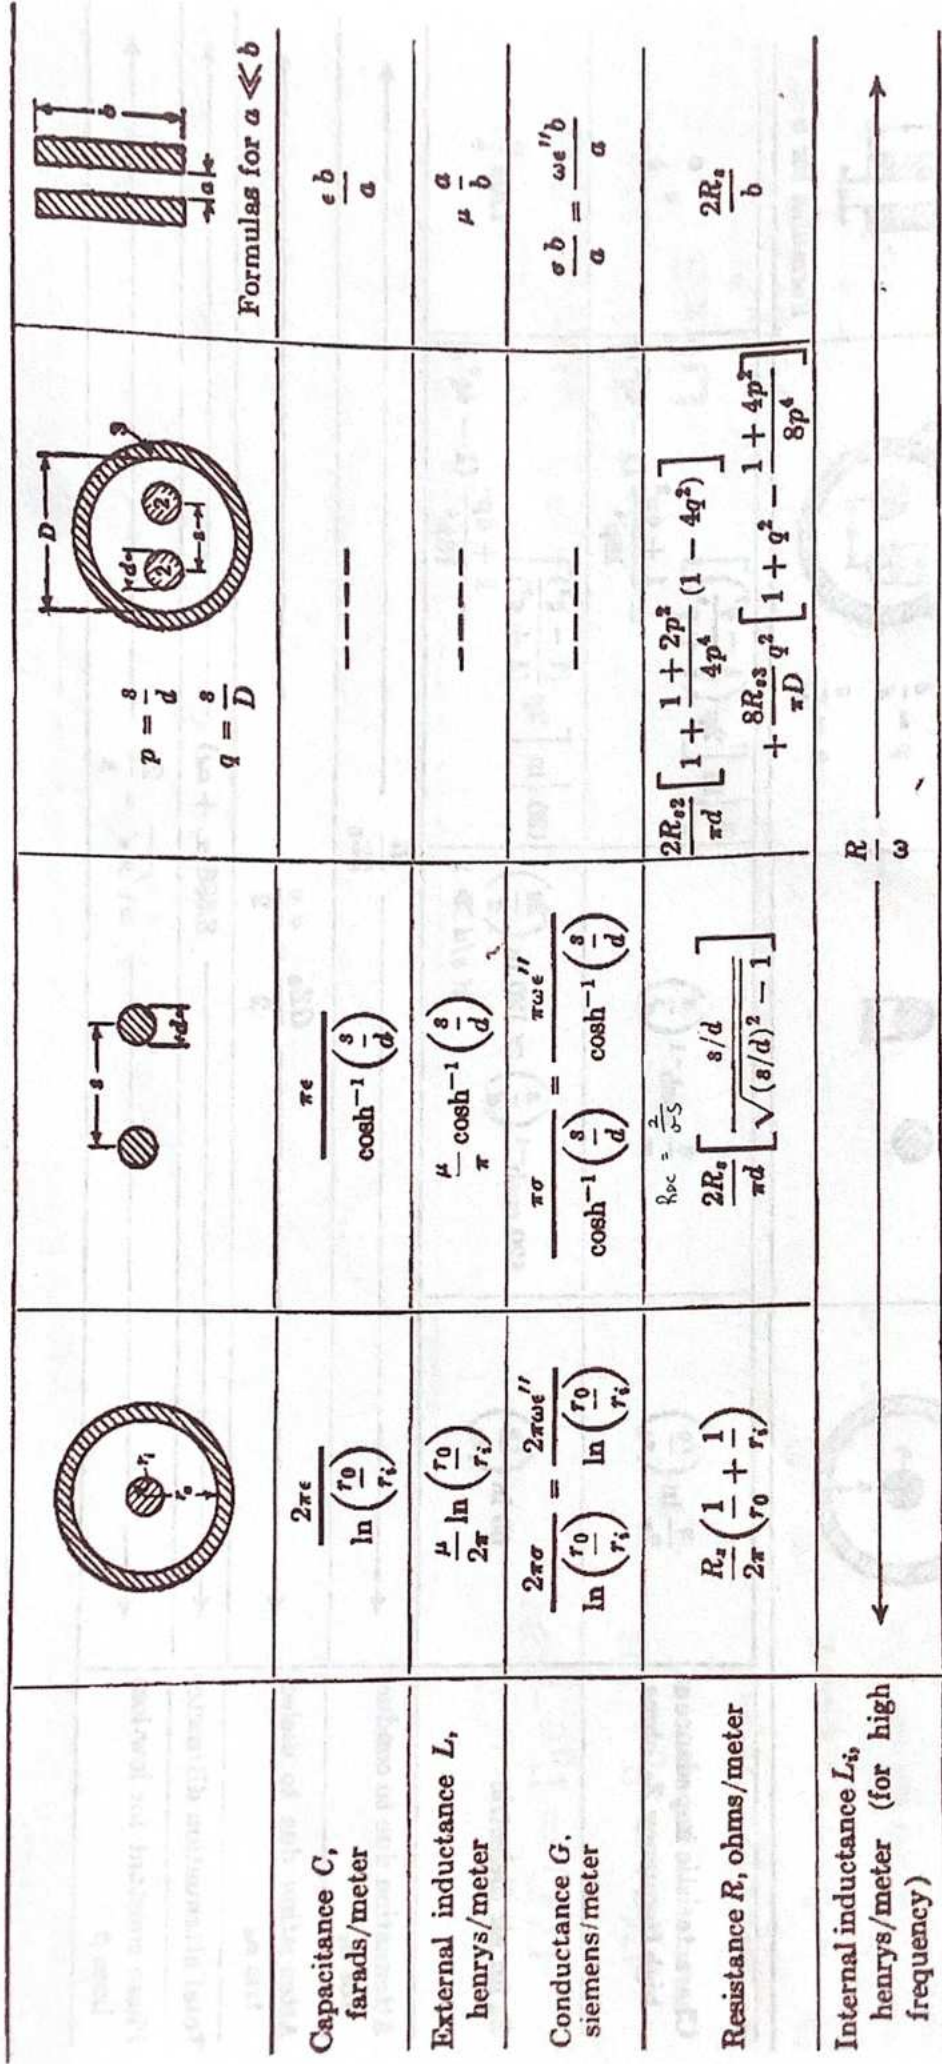 r_i
r_0
s
d
p = s/d
q = s/D
D
d
s
2
2
3
a
b
Formulas for a ≪ b
Capacitance C, farads/meter
2πϵ / ln(r_0/r_i)
πϵ / cosh⁻¹(s/d)
----
ϵb / a
External inductance L, henrys/meter
μ/2π ln(r_0/r_i)
μ/π cosh⁻¹(s/d)
----
μ a/b
Conductance G, siemens/meter
2πσ / ln(r_0/r_i) = 2πωϵ″ / ln(r_0/r_i)
πσ / cosh⁻¹(s/d) = πωϵ″ / cosh⁻¹(s/d)
----
σb / a = ωϵ″b / a
Resistance R, ohms/meter
R_s/2π (1/r_0 + 1/r_i)
R_DC = 2/σS
2R_s/πd [ s/d / √((s/d)² − 1) ]
2R_s2/πd [ 1 + (1 + 2p²)/4p⁴ (1 − 4q²) ]
+ 8R_s3/πD q² [ 1 + q² − (1 + 4p²)/8p⁴ ]
2R_s / b
Internal inductance L_i, henrys/meter (for high frequency)
R/ω